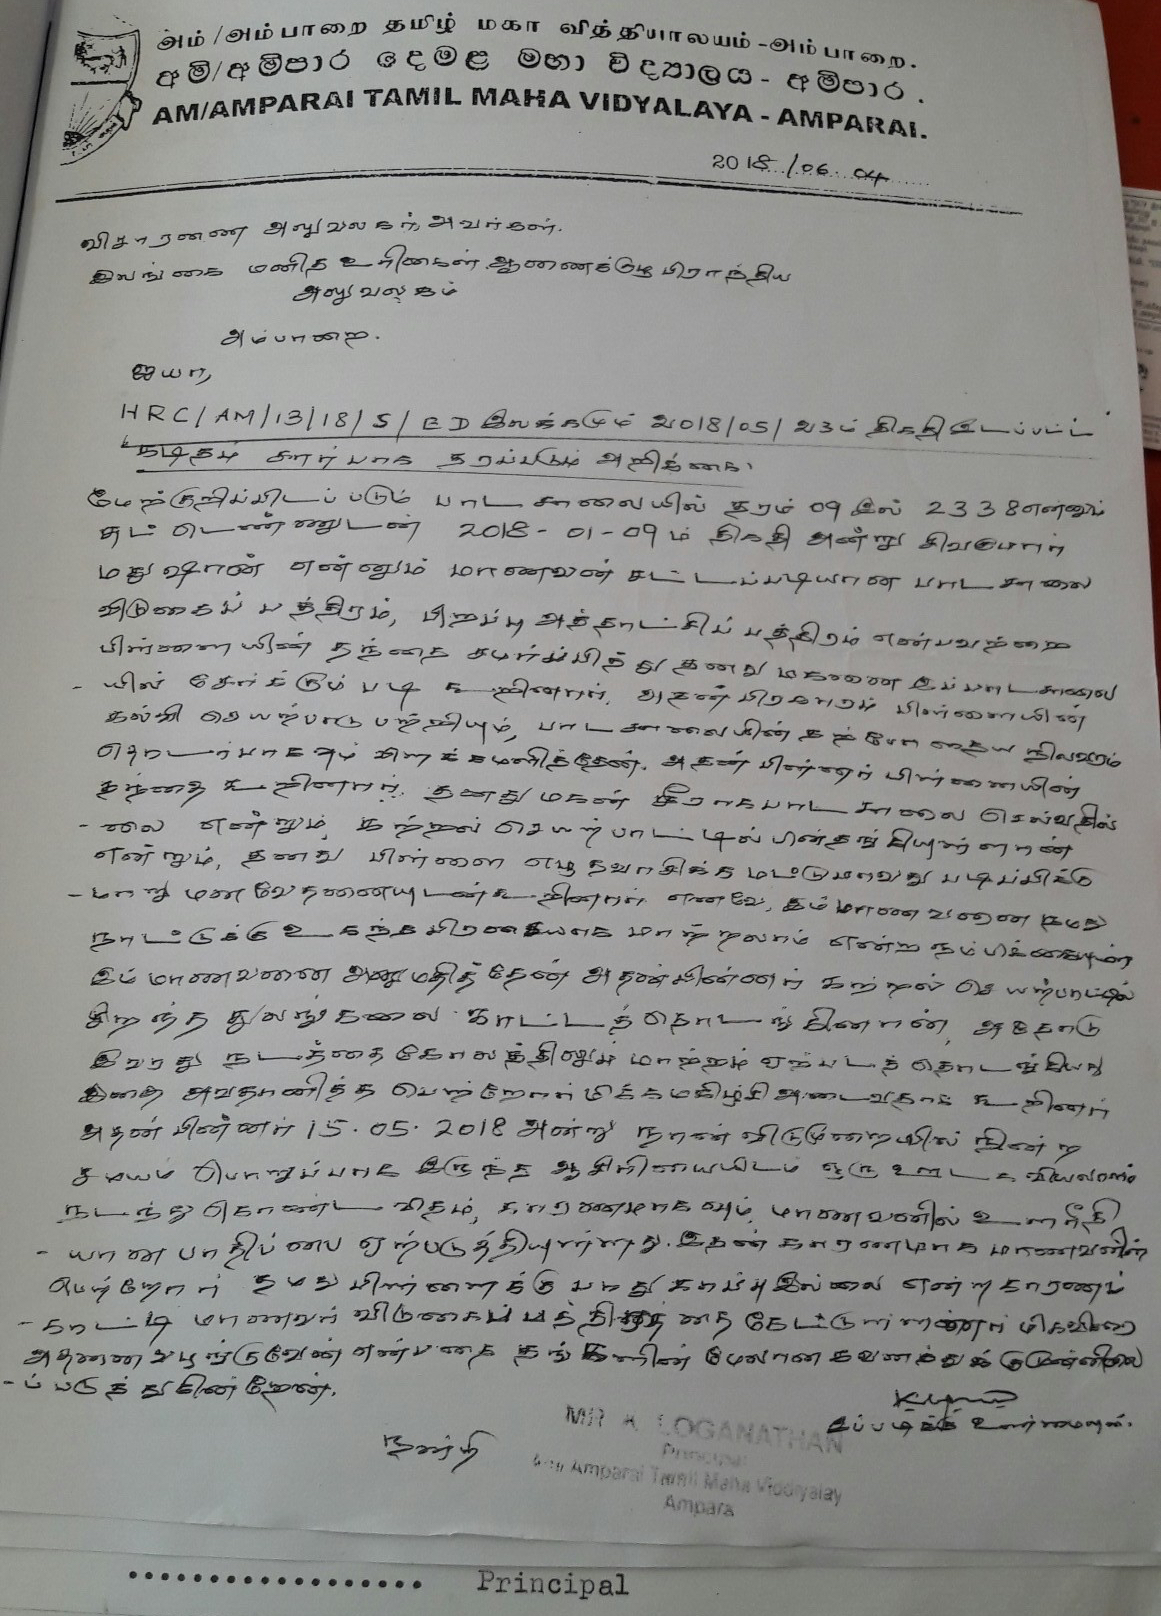 அம்/அம்பாறை தமிழ் மகா வித்தியாலயம்-அம்பாறை.
අම්/අම්පාර දෙමළ මහා විද්‍යාලය - අම්පාර.
AM/AMPARAI TAMIL MAHA VIDYALAYA - AMPARAI.
2018/06.04
விசாரணை அலுவலகர் அவர்கள்.
இலங்கை மனித உரிமைகள் ஆணைக்குழு பிராந்திய
அலுவலகம்
அம்பாறை.
ஐயா,
HRC/AM/13/18/S/ED இலக்கமும் 2018/05/23ம் திகதி இடப்பட்ட
கடிதம் சார்பாக தரப்படும் அறிக்கை.
மேற்குறிப்பிடப்படும் பாடசாலையில் தரம் 09 இல் 2338 என்னும்
சுட்டெண்ணுடன் 2018-01-09ம் திகதி அன்று சிவகுமார்
மதுஷான் என்னும் மாணவன் சட்டப்படியான பாடசாலை
விடுகைப் பத்திரம், பிறப்பு அத்தாட்சிப் பத்திரம் என்பவற்றை
பிள்ளையின் தந்தை சமர்ப்பித்து தனது மகனை இப்பாடசாலை
-யில் சேர்க்கும்படி கூறினார். அதன் பிரகாரம் பிள்ளையின்
கல்வி செயற்பாடு பற்றியும், பாடசாலையின் தற்போதைய நிலவரம்
தொடர்பாகவும் விளக்கமளித்தேன். அதன் பின்னர் பிள்ளையின்
தந்தை கூறினார். தனது மகன் சீராக பாடசாலை செல்வதில்
-லை என்றும், கற்றல் செயற்பாட்டில் பின்தங்கியுள்ளான்
என்றும், தனது பிள்ளை எழுதவாசிக்க மட்டுமாவது படிப்பிக்கு
-மாறு மனவேதனையுடன் கூறினார். எனவே, இம்மாணவனை நமது
நாட்டுக்கு உகந்த பிரஜையாக மாற்றலாம் என்ற நம்பிக்கையுடன்
இம்மாணவனை அனுமதித்தேன் அதன்பின்னர் கற்றல் செயற்பாட்டில்
சிறந்த துலங்கலை காட்டத்தொடங்கினான், அதோடு
இவரது நடத்தை கோலத்திலும் மாற்றம் ஏற்படத் தொடங்கியது
இதை அவதானித்த பெற்றோர் மிக்கமகிழ்ச்சி அடைவதாக கூறினர்
அதன் பின்னர் 15.05.2018 அன்று நான் விடுமுறையில் நின்ற
சமயம் பொறுப்பாக இருந்த ஆசிரியையிடம் ஒரு ஊடகவியலாளர்
நடந்துகொண்ட விதம், காரணமாகவும், மாணவனில் உளரீதி
-யான பாதிப்பை ஏற்படுத்தியுள்ளது. இதன் காரணமாக மாணவனின்
பெற்றோர் தமது பிள்ளைக்கு பாதுகாப்பு இல்லை என்ற காரணம்
-காட்டி மாணவர் விடுகைப் பத்திரத்தை கேட்டுள்ளனர் மிகவிரைவில்
அதனை வழங்குவேன் என்பதை தங்களின் மேலான கவனத்துக்கு முன்னிலை
-ப்படுத்துகின்றேன்.
இப்படிக்கு உண்மையுள்.
நன்றி
MR A LOGANATHAN
Principal
Am/Amparai Tamil Maha Viddiyalay
Ampara
.................. Principal